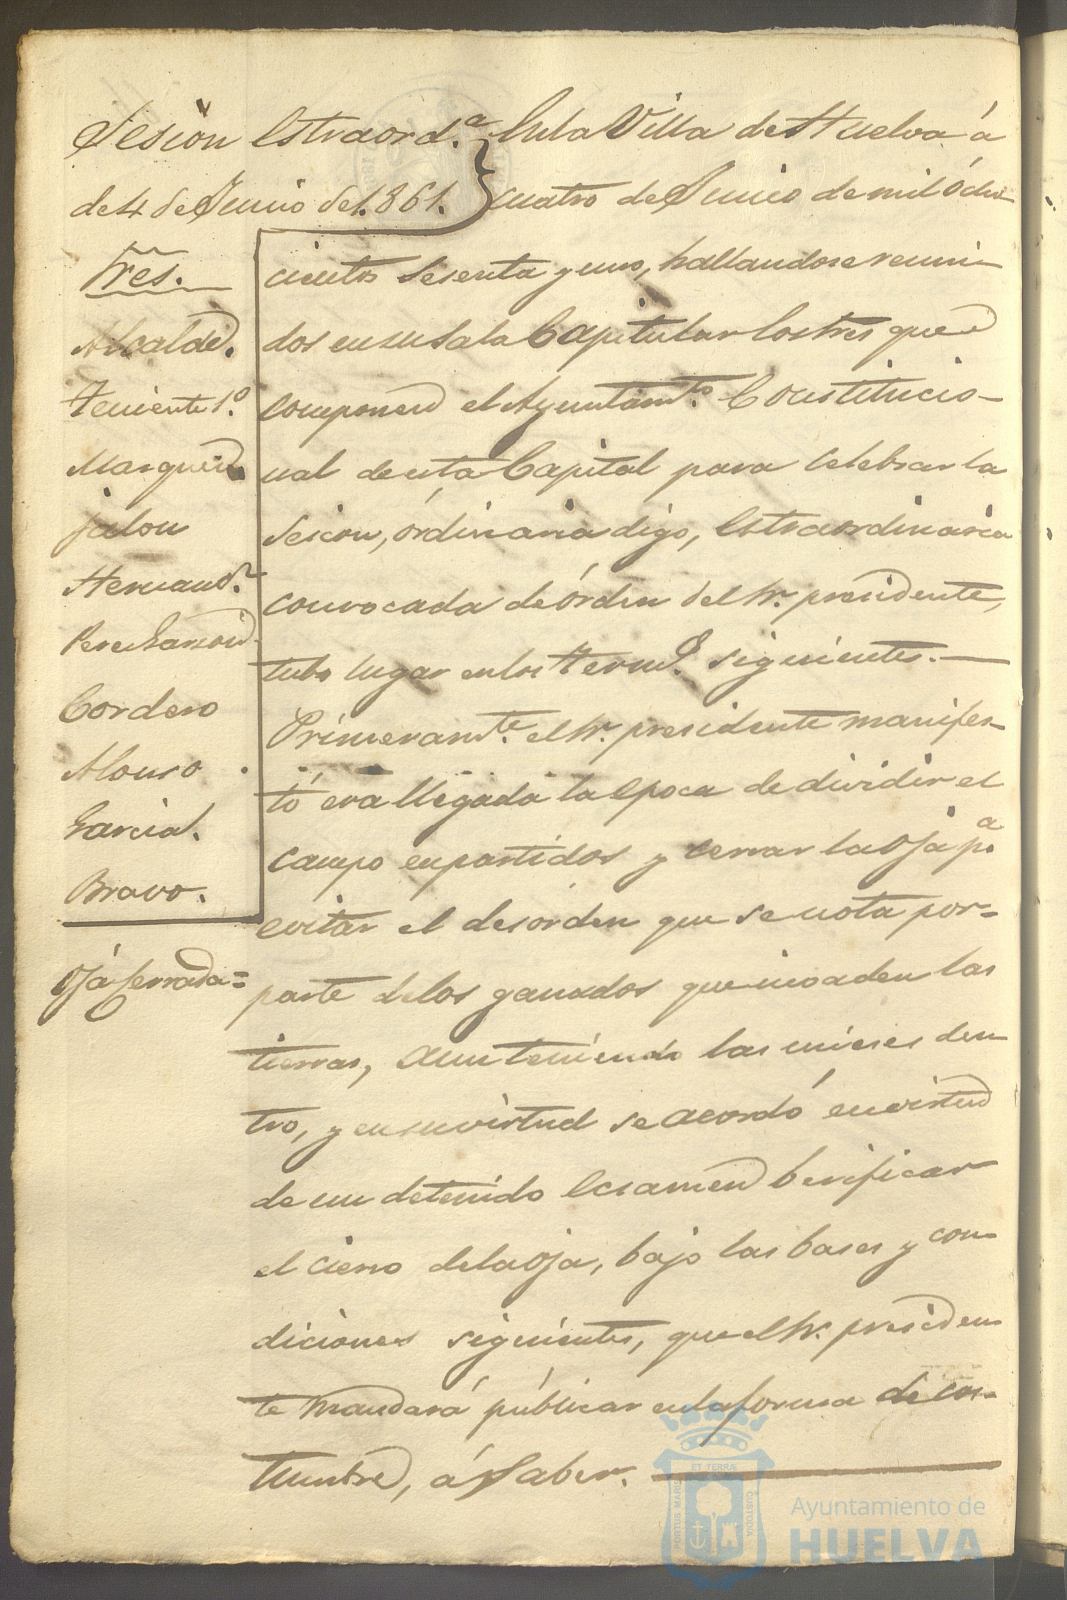 Sesion Estraord.ª
de 4 de Junio de 1.861.
Sres.
Alcalde.
Teniente 1.º
Marquez
Jalon
Hernand.z
Perez Garcia
Cordero
Alonso
Garcia.
Bravo.
Oja Cerrada=
En la Villa de Huelva á
cuatro de Junio de mil ócho
cientos sesenta y uno, hallandose reuni-
dos en su Sala Capitular los Sres que
componen el Ayuntam.to Constitucio-
nal de esta Capital para celebrar la
sesion, órdinaria digo, Estraordinaria
convocada de órden del Sr. presidente,
tubo lugar en los term.s siguientes.—
Primeram.te el Sr. presidente manifes-
tó era llegada la epoca de dividir el
campo en partidos y cerrar la oja p.a
evitar el desorden que se nota por-
parte de los ganados que invaden las
tierras, aun teniendo las mieses den-
tro, y en su virtud se acordó en virtud
de un detenido Ecsamen berificar
el cierro de la oja, bajo las bases y con-
diciones siguientes, que el Sr. presiden
te mandará públicar en la forma de cos-
tumbre, á Saber.
ET TERRAE
PORTUS MARIS
CUSTODIA
Ayuntamiento de
HUELVA